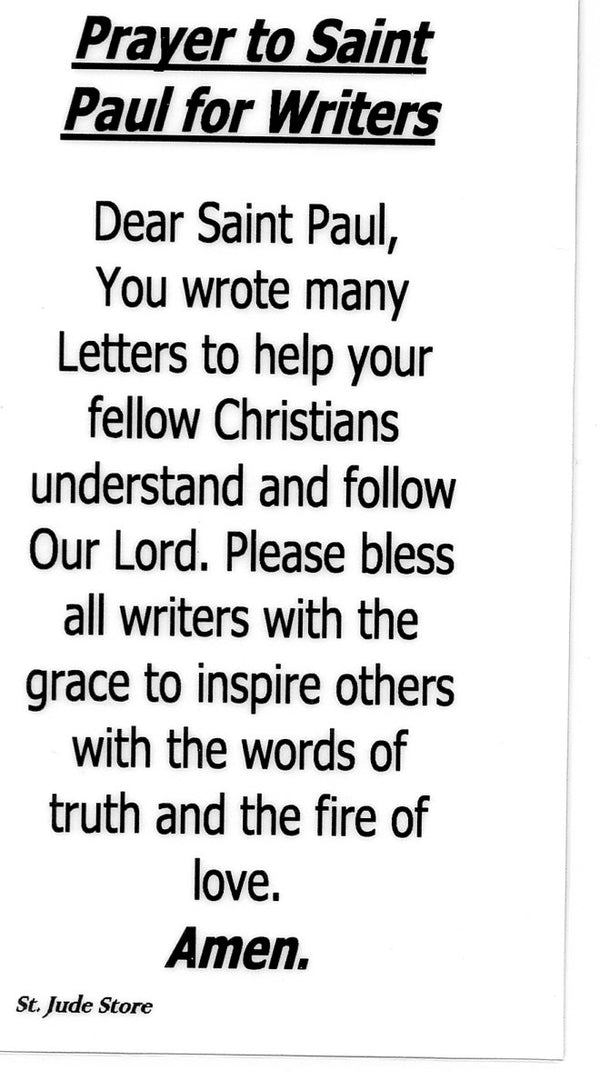 Prayer to Saint
Paul for Writers
Dear Saint Paul,
You wrote many
Letters to help your
fellow Christians
understand and follow
Our Lord. Please bless
all writers with the
grace to inspire others
with the words of
truth and the fire of
love.
Amen.
St. Jude Store